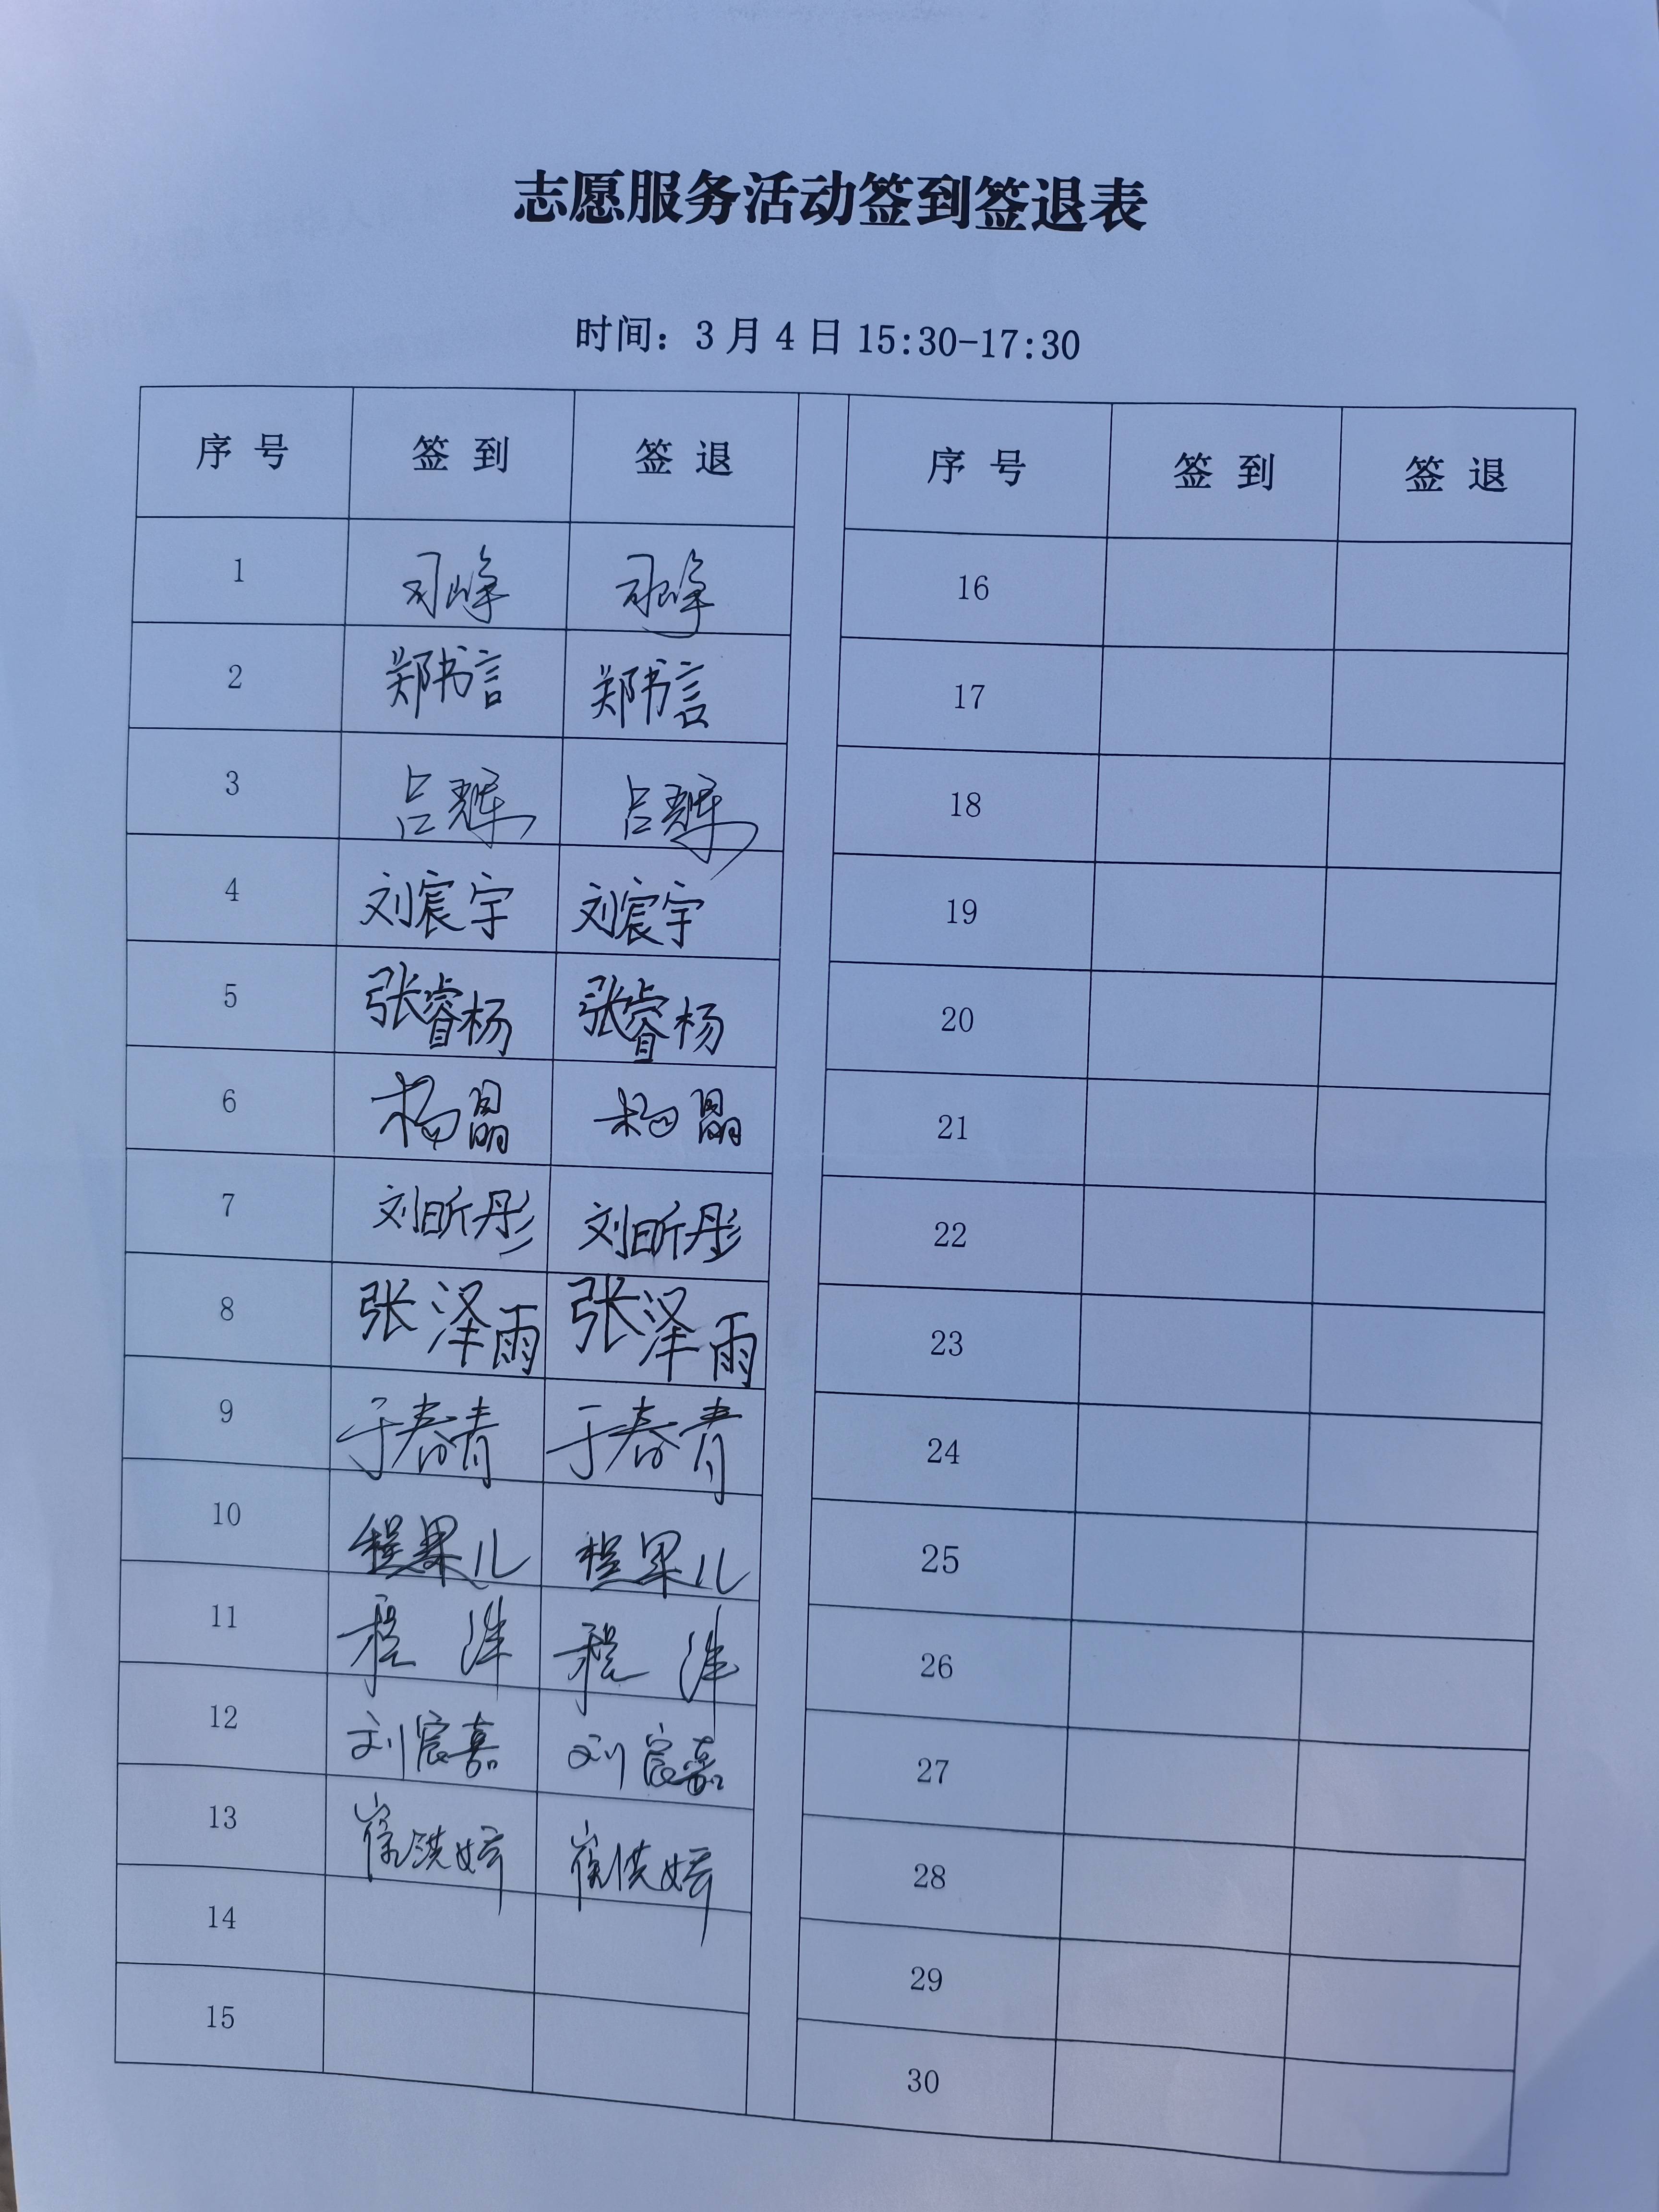 志愿服务活动签到签退表
时间：3月4日15:30-17:30
序号 签到 签退 序号 签到 签退
1 司峰 司峰 16
2 郑书言 郑书言 17
3 吕耀 吕耀 18
4 刘宸宇 刘宸宇 19
5 张睿杨 张睿杨 20
6 杨晶 杨晶 21
7 刘昕彤 刘昕彤 22
8 张泽雨 张泽雨 23
9 于春青 于春青 24
10 程果儿 程果儿 25
11 程 26
12 刘宸嘉 刘宸嘉 27
13 28
14 29
15 30